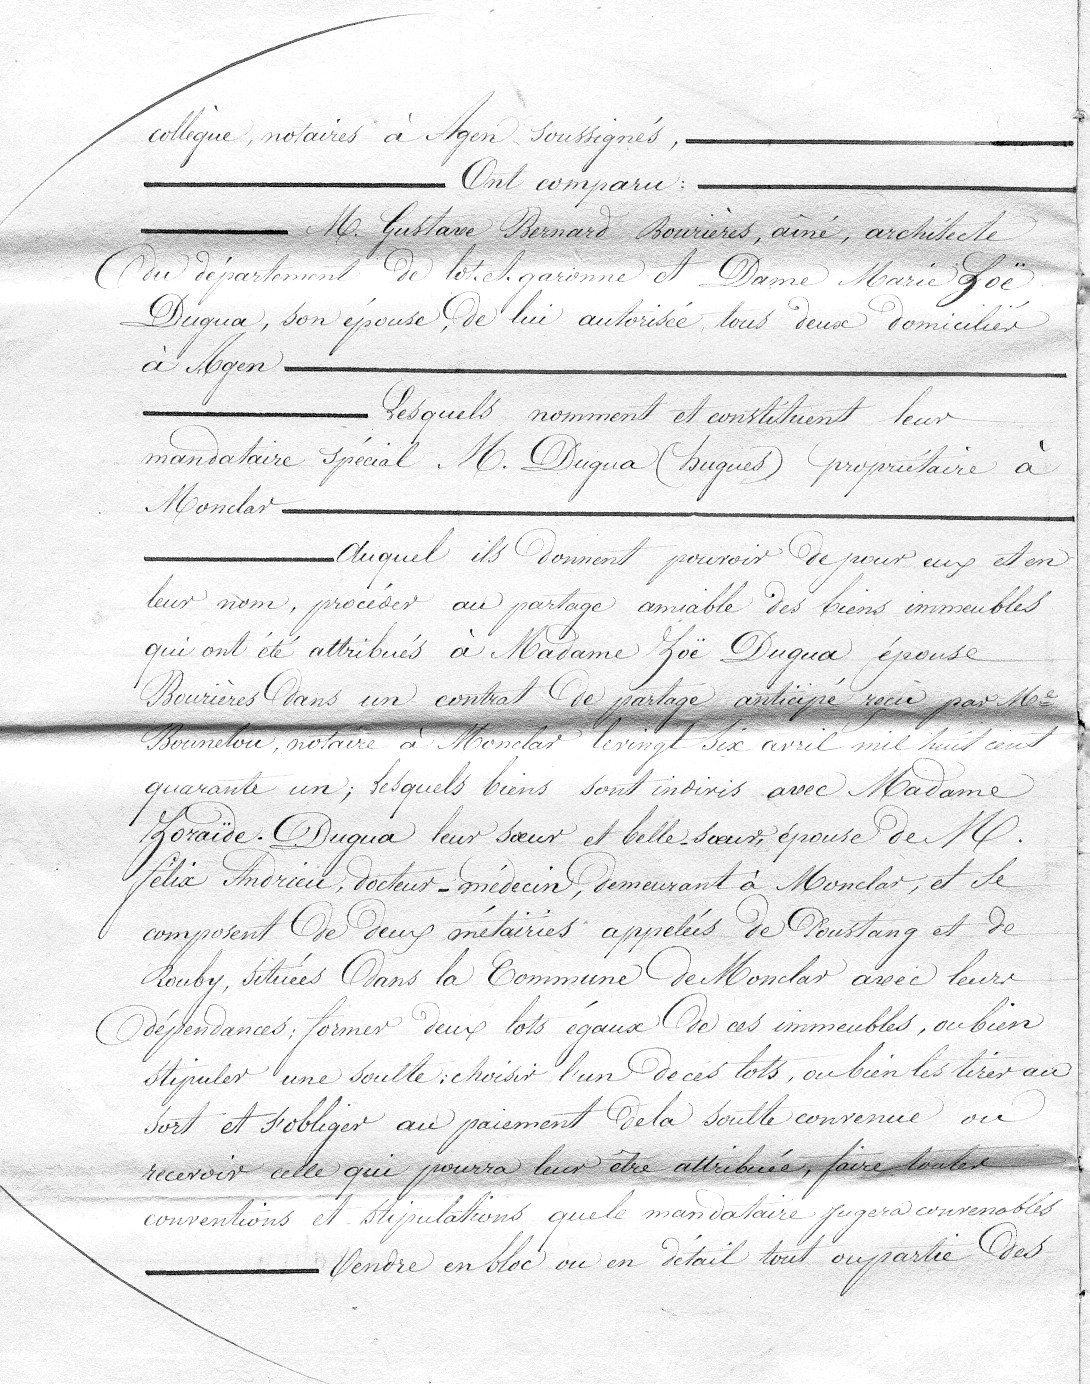 collègue, notaires à Agen soussignés,
Ont comparu :
M. Gustave Bernard Bourières, aîné, architecte
du département de lot.et.garonne et Dame Marie Zoë
Dugua, son épouse, de lui autorisée tous deux domiciliés
à Agen
Lesquels nomment et constituent leur
mandataire spécial M. Dugua (hugues) propriétaire à
Monclar
Auquel ils donnent pouvoir de pour eux et en
leur nom, procéder au partage amiable des biens immeubles
qui ont été attribués à Madame Zoë Dugua épouse
Bourières dans un contrat de partage anticipé reçu par Me
Bounetou, notaire à Monclar le vingt six avril mil huit cent
quarante un ; lesquels biens sont indivis avec Madame
Zoraïde. Dugua leur sœur et belle-sœur, épouse de M.
félix Andrieu, docteur-médecin, demeurant à Monclar, et se
composent de deux métairies appelés de Poustang et de
Rouby, situées dans la Commune de Monclar avec leurs
dépendances ; former deux lots égaux de ces immeubles, ou bien
stipuler une soulte ; choisir l'un de ces lots, ou bien les tirer au
sort et s'obliger au paiement de la soulte convenue ou
recevoir celle qui pourra leur être attribuée, faire toutes
conventions et stipulations que le mandataire jugera convenables
Vendre en bloc ou en détail tout ou partie des